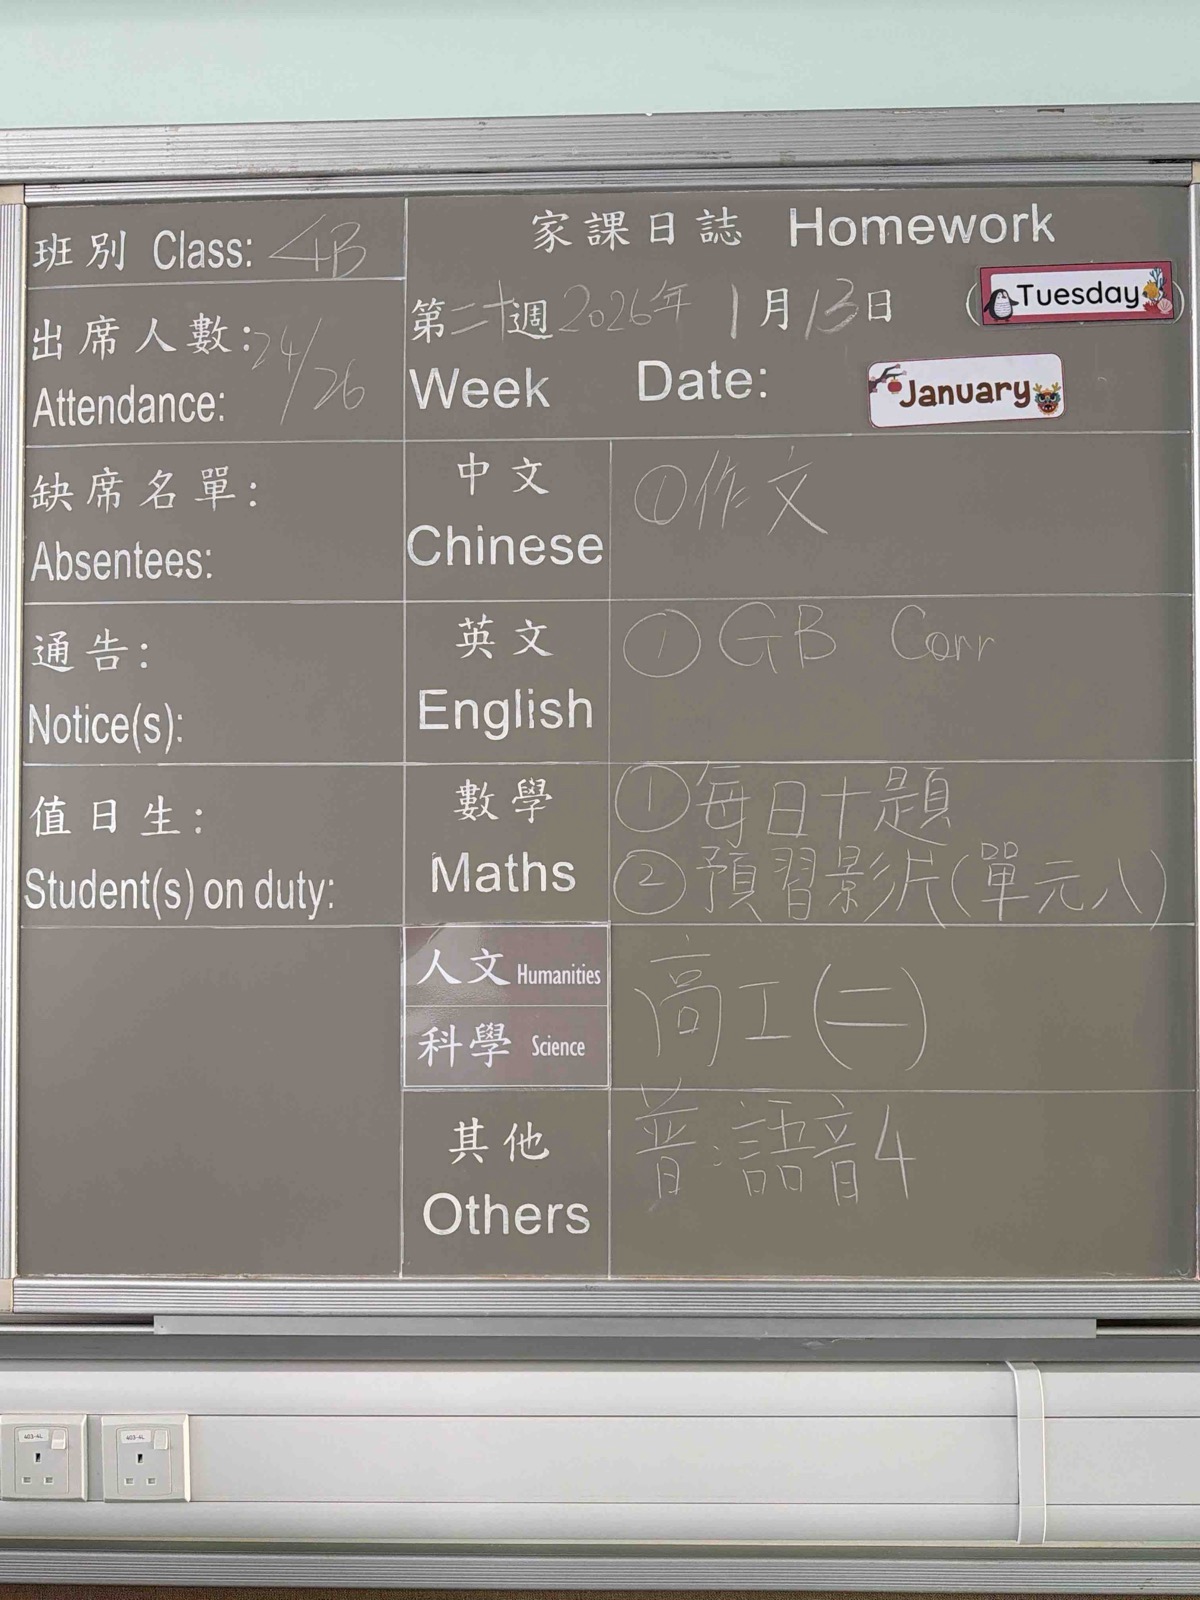 班別 Class: 4B
出席人數: 24/26
Attendance:
缺席名單:
Absentees:
通告:
Notice(s):
值日生:
Student(s) on duty:
家課日誌 Homework
第二十週 2026年 1月13日
Tuesday
Week Date:
January
中文
Chinese
①作文
英文
English
① GB Corr
數學
Maths
①每日十題
②預習影片(單元八)
人文 Humanities
科學 Science
高工(二)
其他
Others
普:語音4
403-4L
403-4L